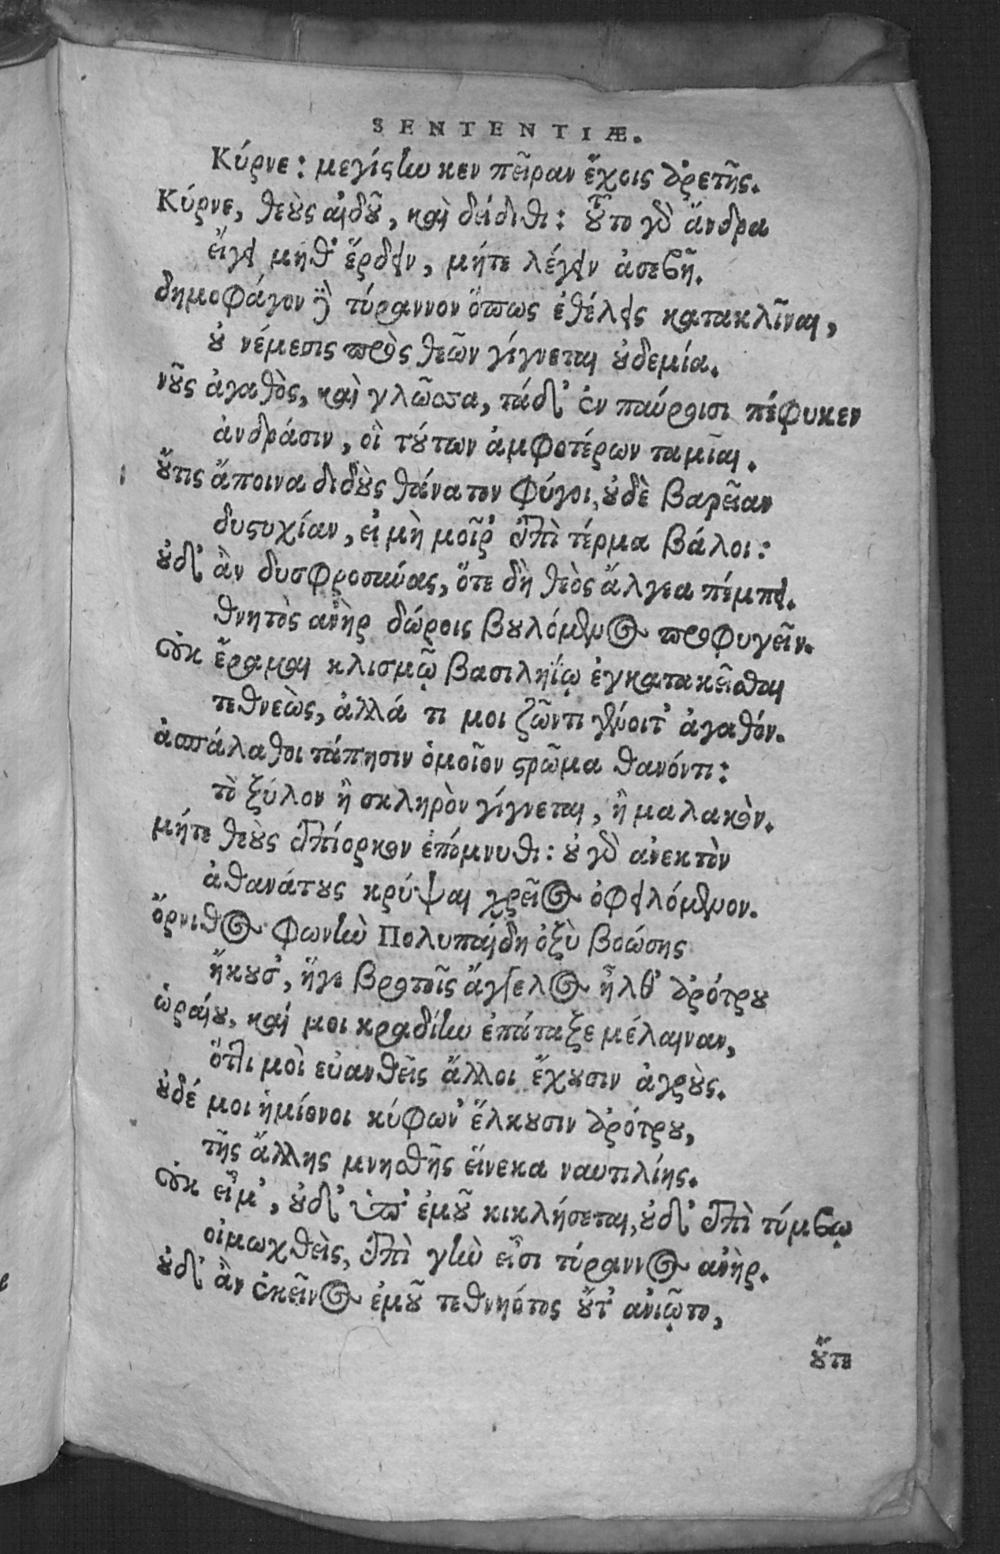 SENTENTIÆ.
Κύρνε: μεγίστην κεν πεῖραν ἔχοις ἀρετῆς.
Κύρνε, θεοὺς αἰδοῦ, καὶ δείδιθι: τοῦτο γὰρ ἄνδρα
εἴγει μήθ' ἔρδειν, μήτε λέγειν ἀσεβῆ.
δημοφάγον δὲ τύραννον ὅπως ἐθέλεις κατακλῖναι,
οὐ νέμεσις πρὸς θεῶν γίγνεται οὐδεμία.
νοῦς ἀγαθὸς, καὶ γλῶσσα, τάδ' ἐν παύροισι πέφυκεν
ἀνδράσιν, οἳ τούτων ἀμφοτέρων ταμίαι.
οὔτις ἄποινα διδοὺς θάνατον φύγοι, οὐδὲ βαρεῖαν
δυστυχίαν, εἰ μὴ μοῖρ' ἐπὶ τέρμα βάλοι:
οὐδ' ἂν δυσφροσύνας, ὅτε δὴ θεὸς ἄλγεα πέμπει.
θνητὸς ἀνὴρ δώροις βουλόμενος προφυγεῖν.
οὐκ ἔραμαι κλισμῷ βασιληΐῳ ἐγκατακεῖσθαι
τεθνεὼς, ἀλλά τι μοι ζῶντι γένοιτ' ἀγαθόν.
ἀσπάλαθοι τάπησιν ὁμοῖον στρῶμα θανόντι:
τὸ ξύλον ἢ σκληρὸν γίγνεται, ἢ μαλακὸν.
μήτε θεοὺς ἐπίορκον ἐπόμνυθι: οὐ γὰρ ἀνεκτὸν
ἀθανάτους κρύψαι χρεῖος ὀφειλόμενον.
ὄρνιθος φωνὴν Πολυπαίδη ὀξὺ βοώσης
ἤκουσ', ἥγε βροτοῖς ἄγγελος ἦλθ' ἀρότρου
ὡραίου, καί μοι κραδίην ἐπάταξε μέλαιναν,
ὅττι μοὶ εὐανθεῖς ἄλλοι ἔχουσιν ἀγροὺς.
οὐδέ μοι ἡμίονοι κύφων' ἕλκουσιν ἀρότρου,
τῆς ἄλλης μνησθῆς εἵνεκα ναυτιλίης.
οὐκ εἶμ', οὐδ' ὑπ' ἐμοῦ κικλήσεται, οὐδ' ἐπὶ τύμβῳ
οἰμωχθεὶς, ἐπὶ γῆν εἶσι τύραννος ἀνὴρ.
οὐδ' ἂν ἐκεῖνος ἐμοῦ τεθνηότος οὔτ' ἀνιῷτο,
οὔτε